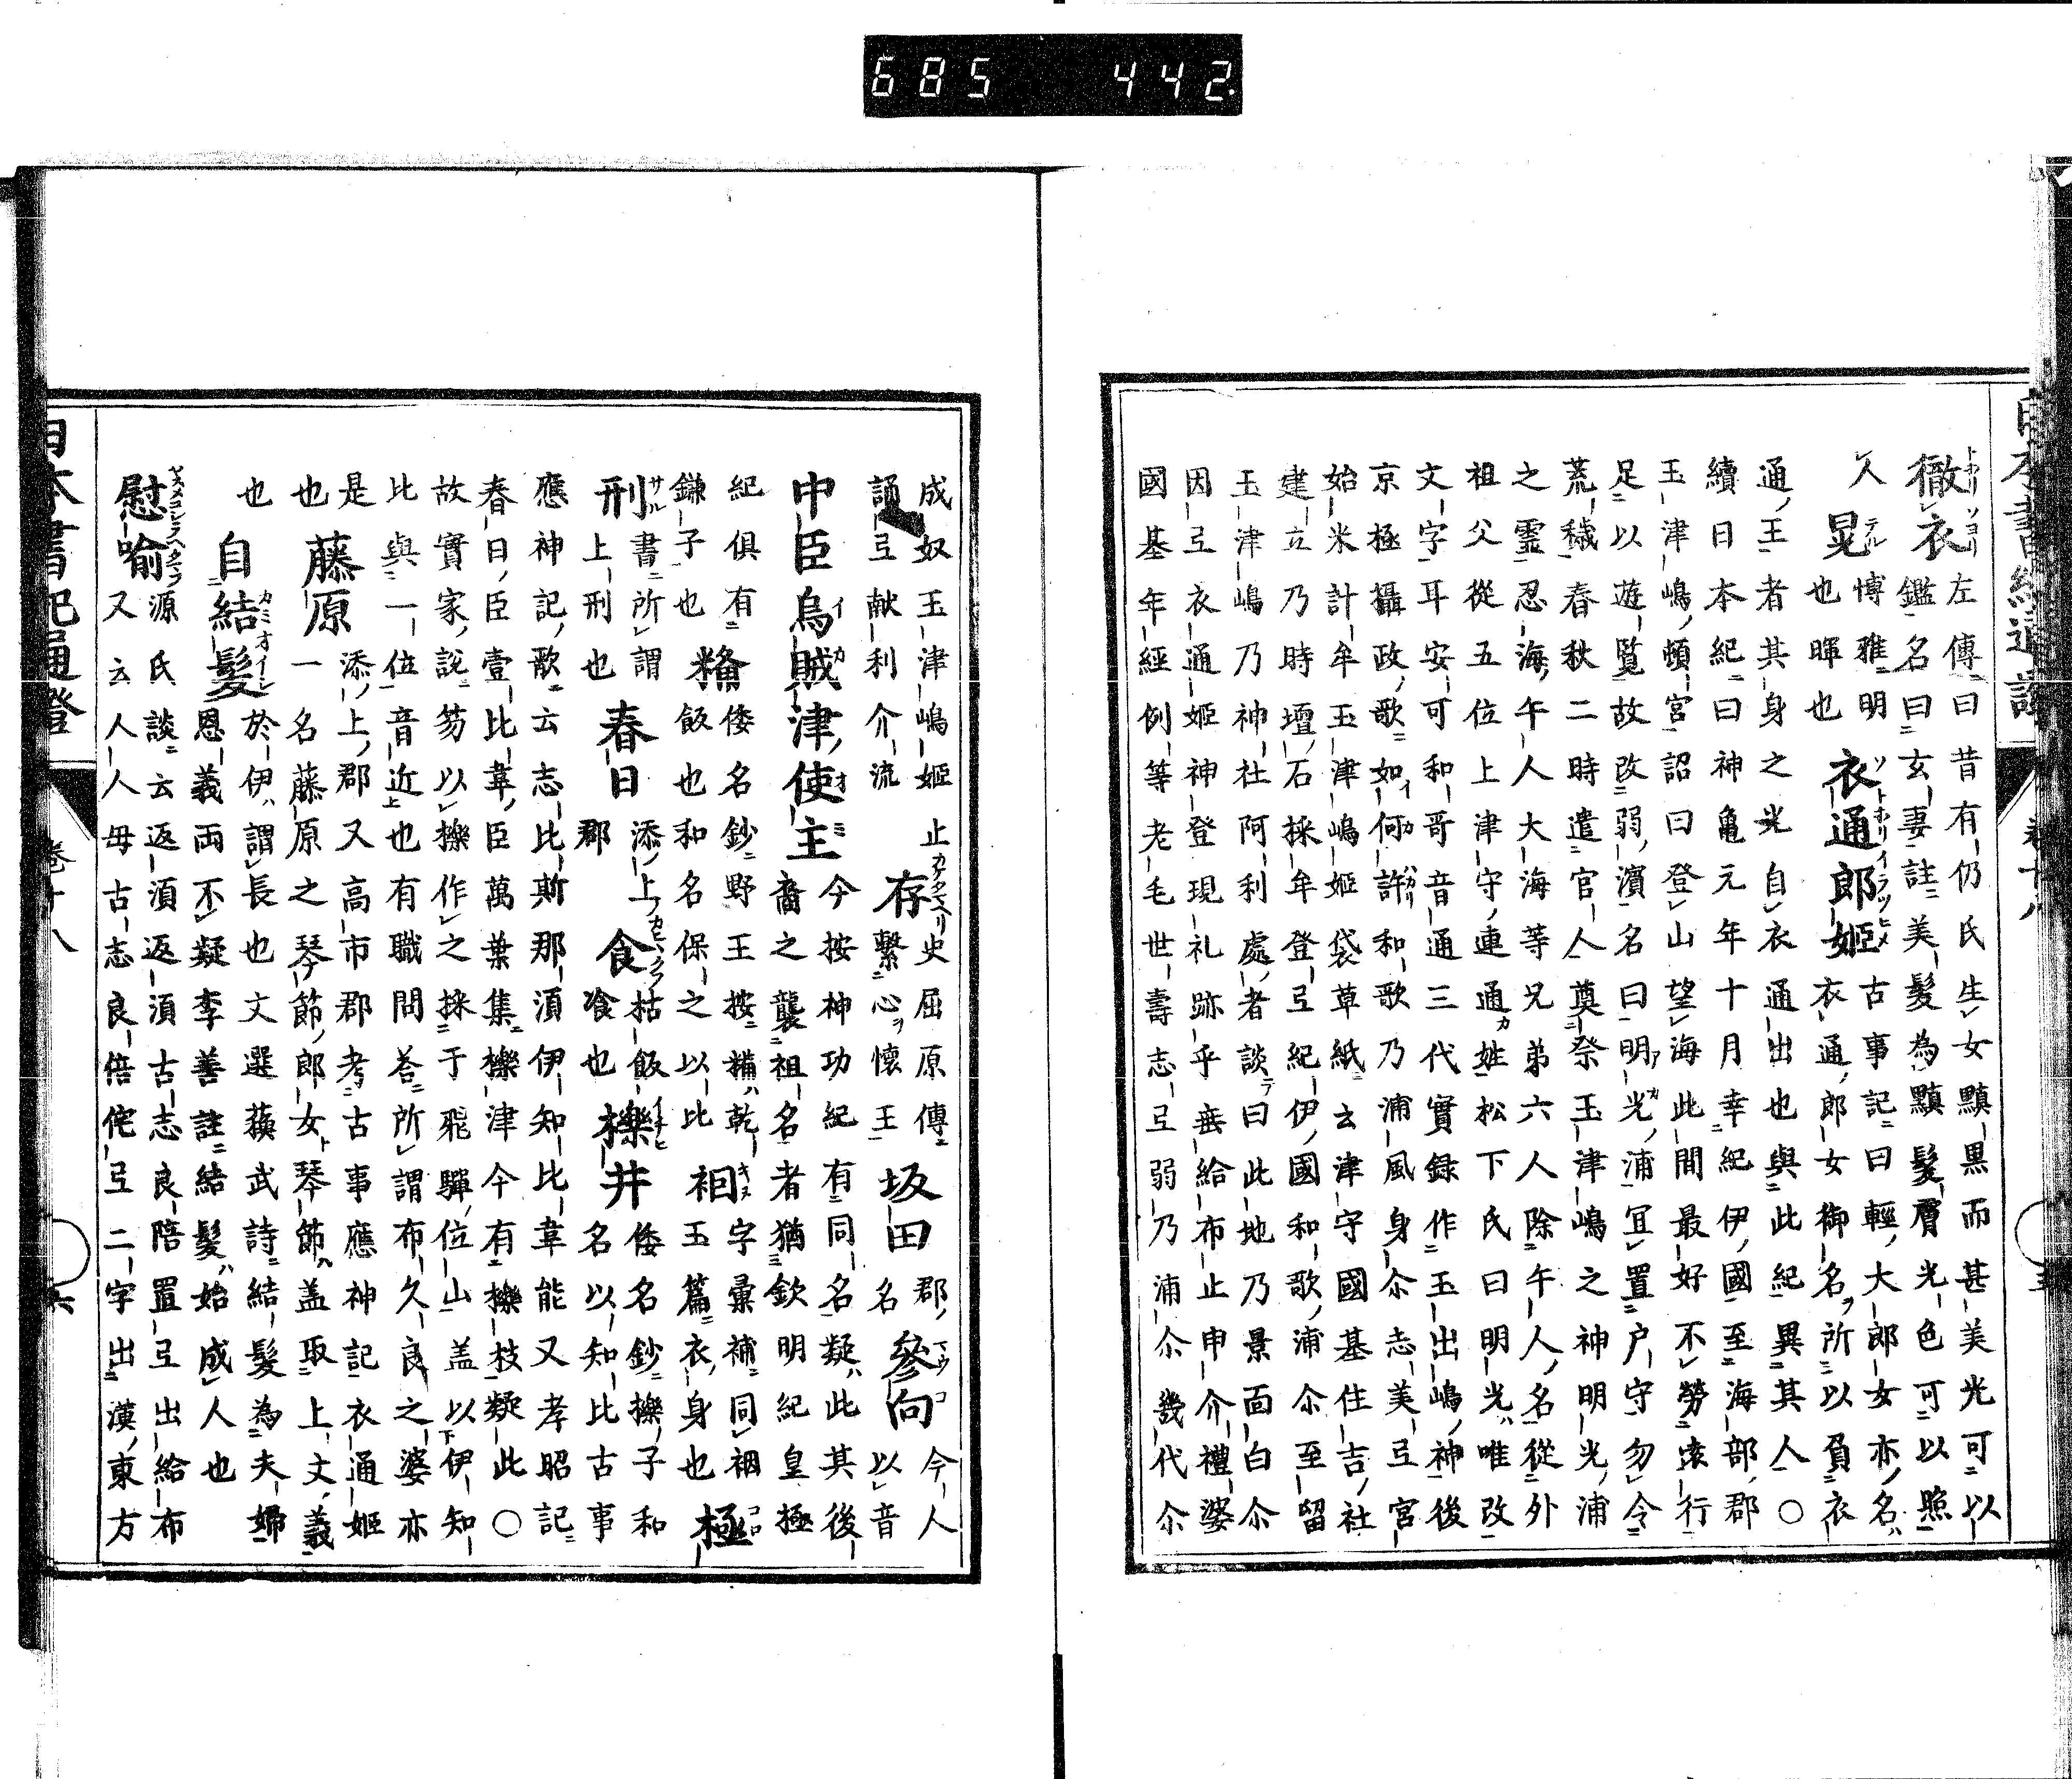 685 442
徹衣 左傳曰昔有仍氏生女黰黒而甚美光可以
鑑名曰玄妻註美髮為黰髮膚光色可以照
人 晃 博雅明也暉也 衣通郎姬 古事記曰輕大郎女亦名
衣通郎女御名所以負衣
通王者其身之光自衣通出也與此紀異其人○
續日本紀曰神亀元年十月幸紀伊國至海部郡
玉津嶋頓宮詔曰登山望海此間最好不勞遠行
足以遊覧故改弱濱名曰明光浦冝置戸守勿令
荒穢春秋二時遣官人奠祭玉津嶋之神明光浦
之靈忍海午人大海等兄弟六人除午人名從外
祖父從五位上津守連通姓松下氏曰明光唯改
文字耳安可和哥音通三代實録作玉出嶋神後
京極攝政歌如何許和歌乃浦風身尒志美弖宮
始米計牟玉津嶋姬袋草紙云津守國基住吉社
建立乃時壇石採牟登弖紀伊國和歌浦尒至留
玉津嶋乃神社阿利處者談曰此地乃景面白尒
因弖衣通姬神登現礼跡乎垂給布止申介禮婆
國基年經例等老毛世壽志弖弱乃浦尒幾代尒
成奴玉津嶋姬止
誦弖献利介流 存 史屈原傳繫心懷王 坂田 郡名 參向 今人以音
中臣烏賊津使主 今按神功紀有同名疑此其後
裔之襲祖名者猶欽明紀皇極
紀俱有鎌子也 糒 倭名鈔野王按糒乾飯也和名保之以比 裀 字彙補同裀玉篇衣身也 極
刑 書所謂上刑也 春日 添上郡 食 枯飯飡也 櫟井 倭名鈔櫟子和名以知比古事
應神記歌云志比斯那須伊知比韋能又孝昭記
春日臣壹比韋臣萬葉集櫟津今有櫟枝疑此○
故實家説笏以櫟作之採于飛驒位山盖以伊知
比與一位音近也有職問荅所謂布久良之婆亦
是也 藤原 添上郡又高市郡考古事應神記衣通姬
一名藤原之琴節郎女琴節盖取上文義
也 自結髮 於伊謂長也文選蘓武詩結髮為夫婦
恩義両不疑李善註結髮始成人也
慰喻 源氏談云返須返須古志良陪置弖出給布
又云人人毋古志良倍侘弖二字出漢東方
日本書紀通證 卷十八 六